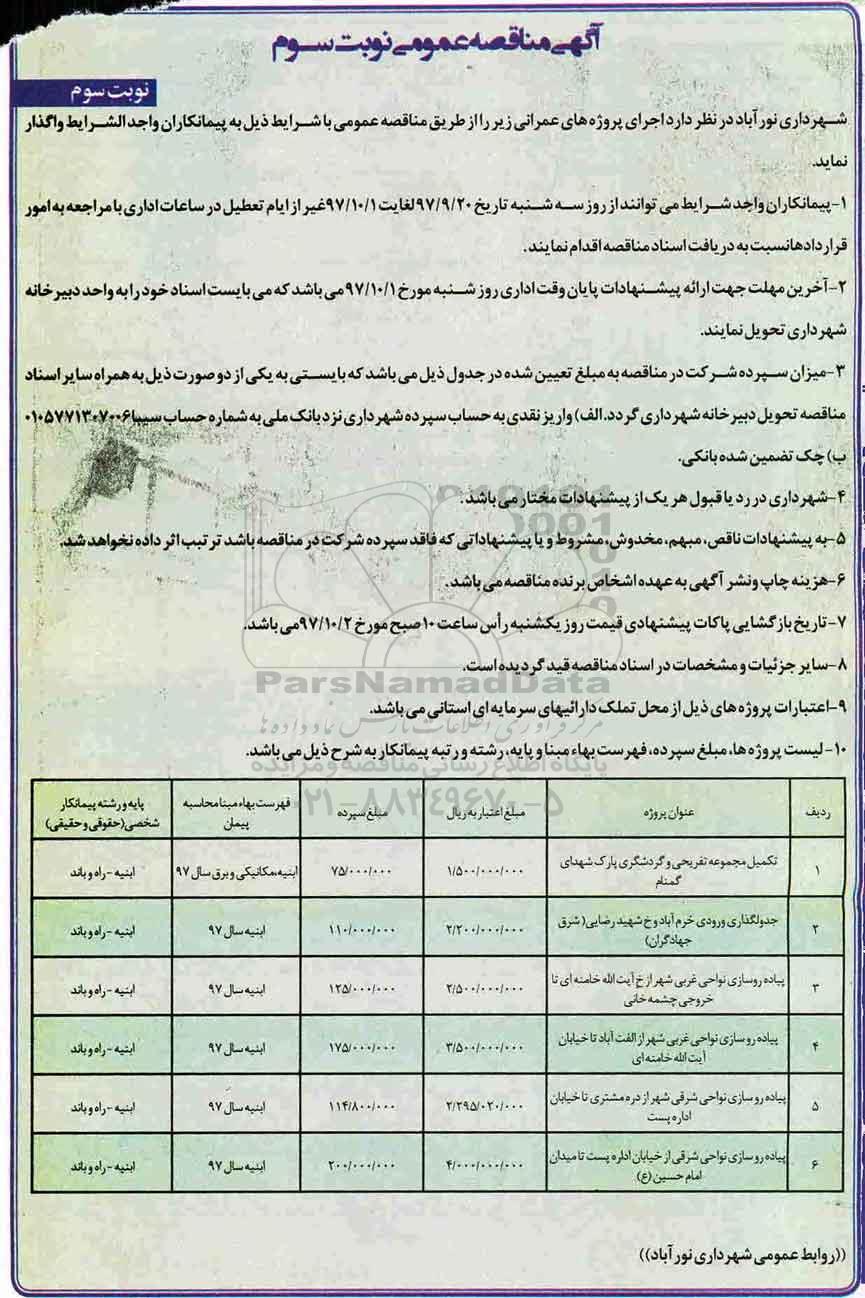 آگهی مناقصه عمومی نوبت سوم
نوبت سوم
شهرداری نورآباد در نظر دارد اجرای پروژه های عمرانی زیر را از طریق مناقصه عمومی با شرایط ذیل به پیمانکاران واجد الشرایط واگذار
نماید.
۱-پیمانکاران واجد شرایط می توانند از روز سه شنبه تاریخ ۹۷/۹/۲۰ لغایت ۹۷/۱۰/۱ غیر از ایام تعطیل در ساعات اداری با مراجعه به امور
قراردادها نسبت به دریافت اسناد مناقصه اقدام نمایند.
۲-آخرین مهلت جهت ارائه پیشنهادات پایان وقت اداری روز شنبه مورخ ۹۷/۱۰/۱ می باشد که می بایست اسناد خود را به واحد دبیرخانه
شهرداری تحویل نمایند.
۳-میزان سپرده شرکت در مناقصه به مبلغ تعیین شده در جدول ذیل می باشد که بایستی به یکی از دو صورت ذیل به همراه سایر اسناد
مناقصه تحویل دبیرخانه شهرداری گردد.الف) واریز نقدی به حساب سپرده شهرداری نزد بانک ملی به شماره حساب سیبا ۰۱۰۵۷۷۱۳۰۷۰۰۶
ب) چک تضمین شده بانکی.
۴-شهرداری در رد یا قبول هر یک از پیشنهادات مختار می باشد.
۵-به پیشنهادات ناقص، مبهم، مخدوش، مشروط و یا پیشنهاداتی که فاقد سپرده شرکت در مناقصه باشد ترتیب اثر داده نخواهد شد.
۶-هزینه چاپ ونشر آگهی به عهده اشخاص برنده مناقصه می باشد.
۷-تاریخ بازگشایی پاکات پیشنهادی قیمت روز یکشنبه رأس ساعت ۱۰ صبح مورخ ۹۷/۱۰/۲ می باشد.
۸-سایر جزئیات و مشخصات در اسناد مناقصه قید گردیده است.
ParsNamadData
۹-اعتبارات پروژه های ذیل از محل تملک دارائیهای سرمایه ای استانی می باشد.
مرکز فرآوری اطلاعات پارس نماد داده ها
۱۰-لیست پروژه ها، مبلغ سپرده، فهرست بهاء مبنا و پایه، رشته و رتبه پیمانکار به شرح ذیل می باشد.
پایگاه اطلاع رسانی مناقصه و مزایده
۰۲۱-۸۸۳۴۹۶۷۰-۵
ردیف عنوان پروژه مبلغ اعتبار به ریال مبلغ سپرده فهرست بهاء مبنا محاسبه پیمان پایه و رشته پیمانکار شخصی(حقوقی و حقیقی)
۱ تکمیل مجموعه تفریحی و گردشگری پارک شهدای گمنام ۱/۵۰۰/۰۰۰/۰۰۰ ۷۵/۰۰۰/۰۰۰ ابنیه،مکانیکی و برق سال ۹۷ ابنیه - راه و باند
۲ جدولگذاری ورودی خرم آباد و خ شهید رضایی(شرق جهادگران) ۲/۲۰۰/۰۰۰/۰۰۰ ۱۱۰/۰۰۰/۰۰۰ ابنیه سال ۹۷ ابنیه - راه و باند
۳ پیاده روسازی نواحی غربی شهر از خ آیت الله خامنه ای تا خروجی چشمه خانی ۲/۵۰۰/۰۰۰/۰۰۰ ۱۲۵/۰۰۰/۰۰۰ ابنیه سال ۹۷ ابنیه - راه و باند
۴ پیاده رو سازی نواحی غربی شهر از الفت آباد تا خیابان آیت الله خامنه ای ۳/۵۰۰/۰۰۰/۰۰۰ ۱۷۵/۰۰۰/۰۰۰ ابنیه سال ۹۷ ابنیه - راه و باند
۵ پیاده رو سازی نواحی شرقی شهر از دره مشتری تا خیابان اداره پست ۲/۲۹۵/۰۲۰/۰۰۰ ۱۱۴/۸۰۰/۰۰۰ ابنیه سال ۹۷ ابنیه - راه و باند
۶ پیاده رو سازی نواحی شرقی از خیابان اداره پست تا میدان امام حسین (ع) ۴/۰۰۰/۰۰۰/۰۰۰ ۲۰۰/۰۰۰/۰۰۰ ابنیه سال ۹۷ ابنیه - راه و باند
((روابط عمومی شهرداری نورآباد))